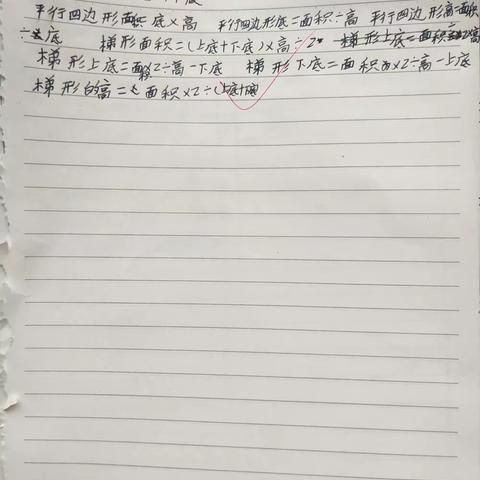 平行四边形面积 底×高 平行四边形底=面积÷高 平行四边形高=面积
÷底 梯形面积=(上底+下底)×高÷2 梯形上底=面积×2÷高
梯形上底=面积×2÷高-下底 梯形下底=面积×2÷高-上底
梯形的高=面积×2÷(上底+下底